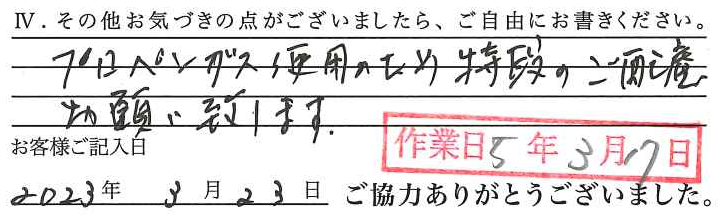 Ⅳ．その他お気づきの点がございましたら、ご自由にお書きください。
プロパンガス使用のため特段のご配慮
お願い致します.
お客様ご記入日
作業日5年3月17日
2023年 3月23日 ご協力ありがとうございました。